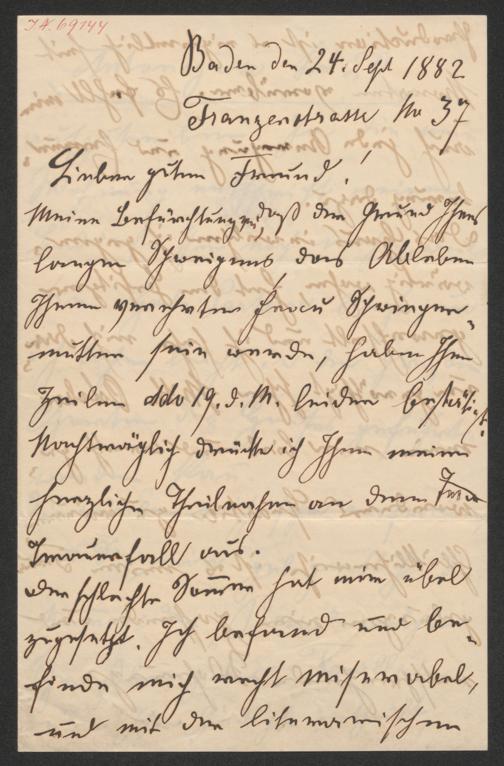 I.N. 69144
Baden den 24. Sept 1882
Franzensstrasse No 37
Lieber guter Freund!
Meine Befürchtungen, daß der Grund Ihres
langen Schweigens, das Ableben
Ihrer verehrten Frau Schwieger-
mutter sein werde, haben Ihre
Zeilen ddo 19. d. M. leider bestätigt.
Nachträglich drücke ich Ihnen meine
herzliche Theilnahme an dem
Trauerfall aus.
Der schlechte Sommer hat mir übel
zugesetzt. Ich befand und be-
finde mich recht miserabel,
und mit der literarischen